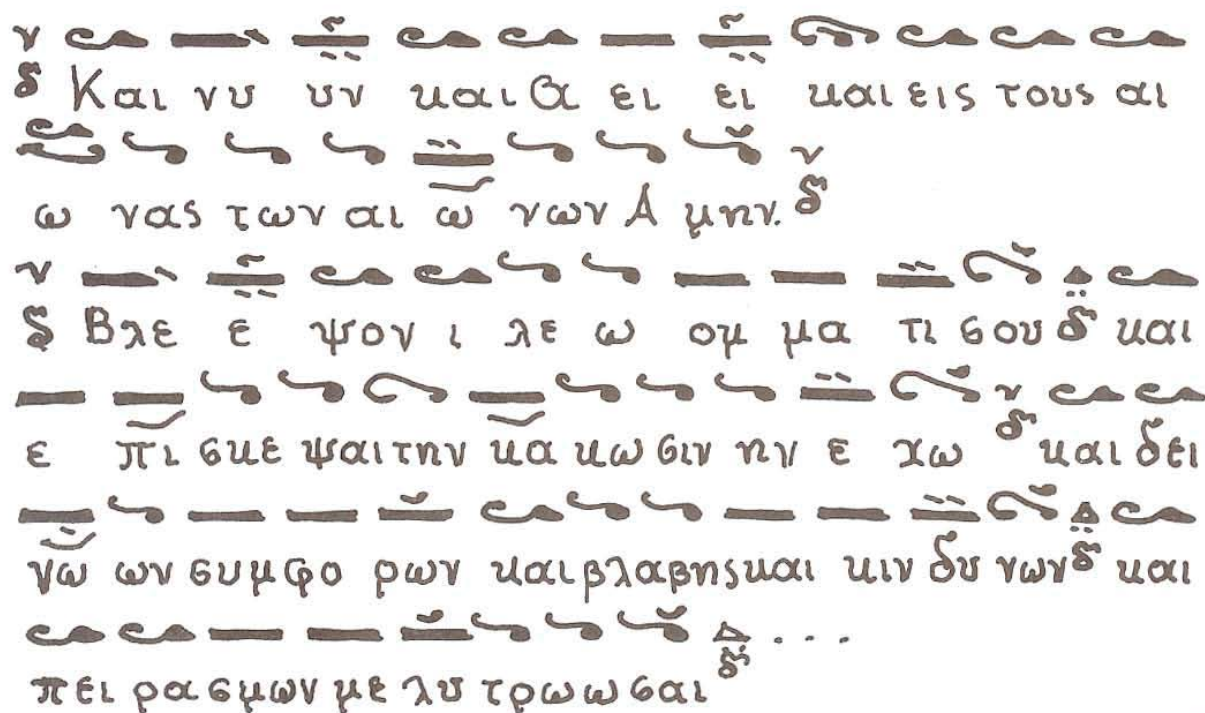 Και νυ υν και α ει ει και εις τους αι
ω νας των αι ω νων Α μην.
Βλε ε ψον ι λε ω ομ μα τι σου και
ε πι σκε ψαι την κα κω σιν ην ε χω και δει
νω ων συμ φο ρων και βλα βης και κιν δυ νων και
πει ρα σμων με λυ τρω ω σαι ...